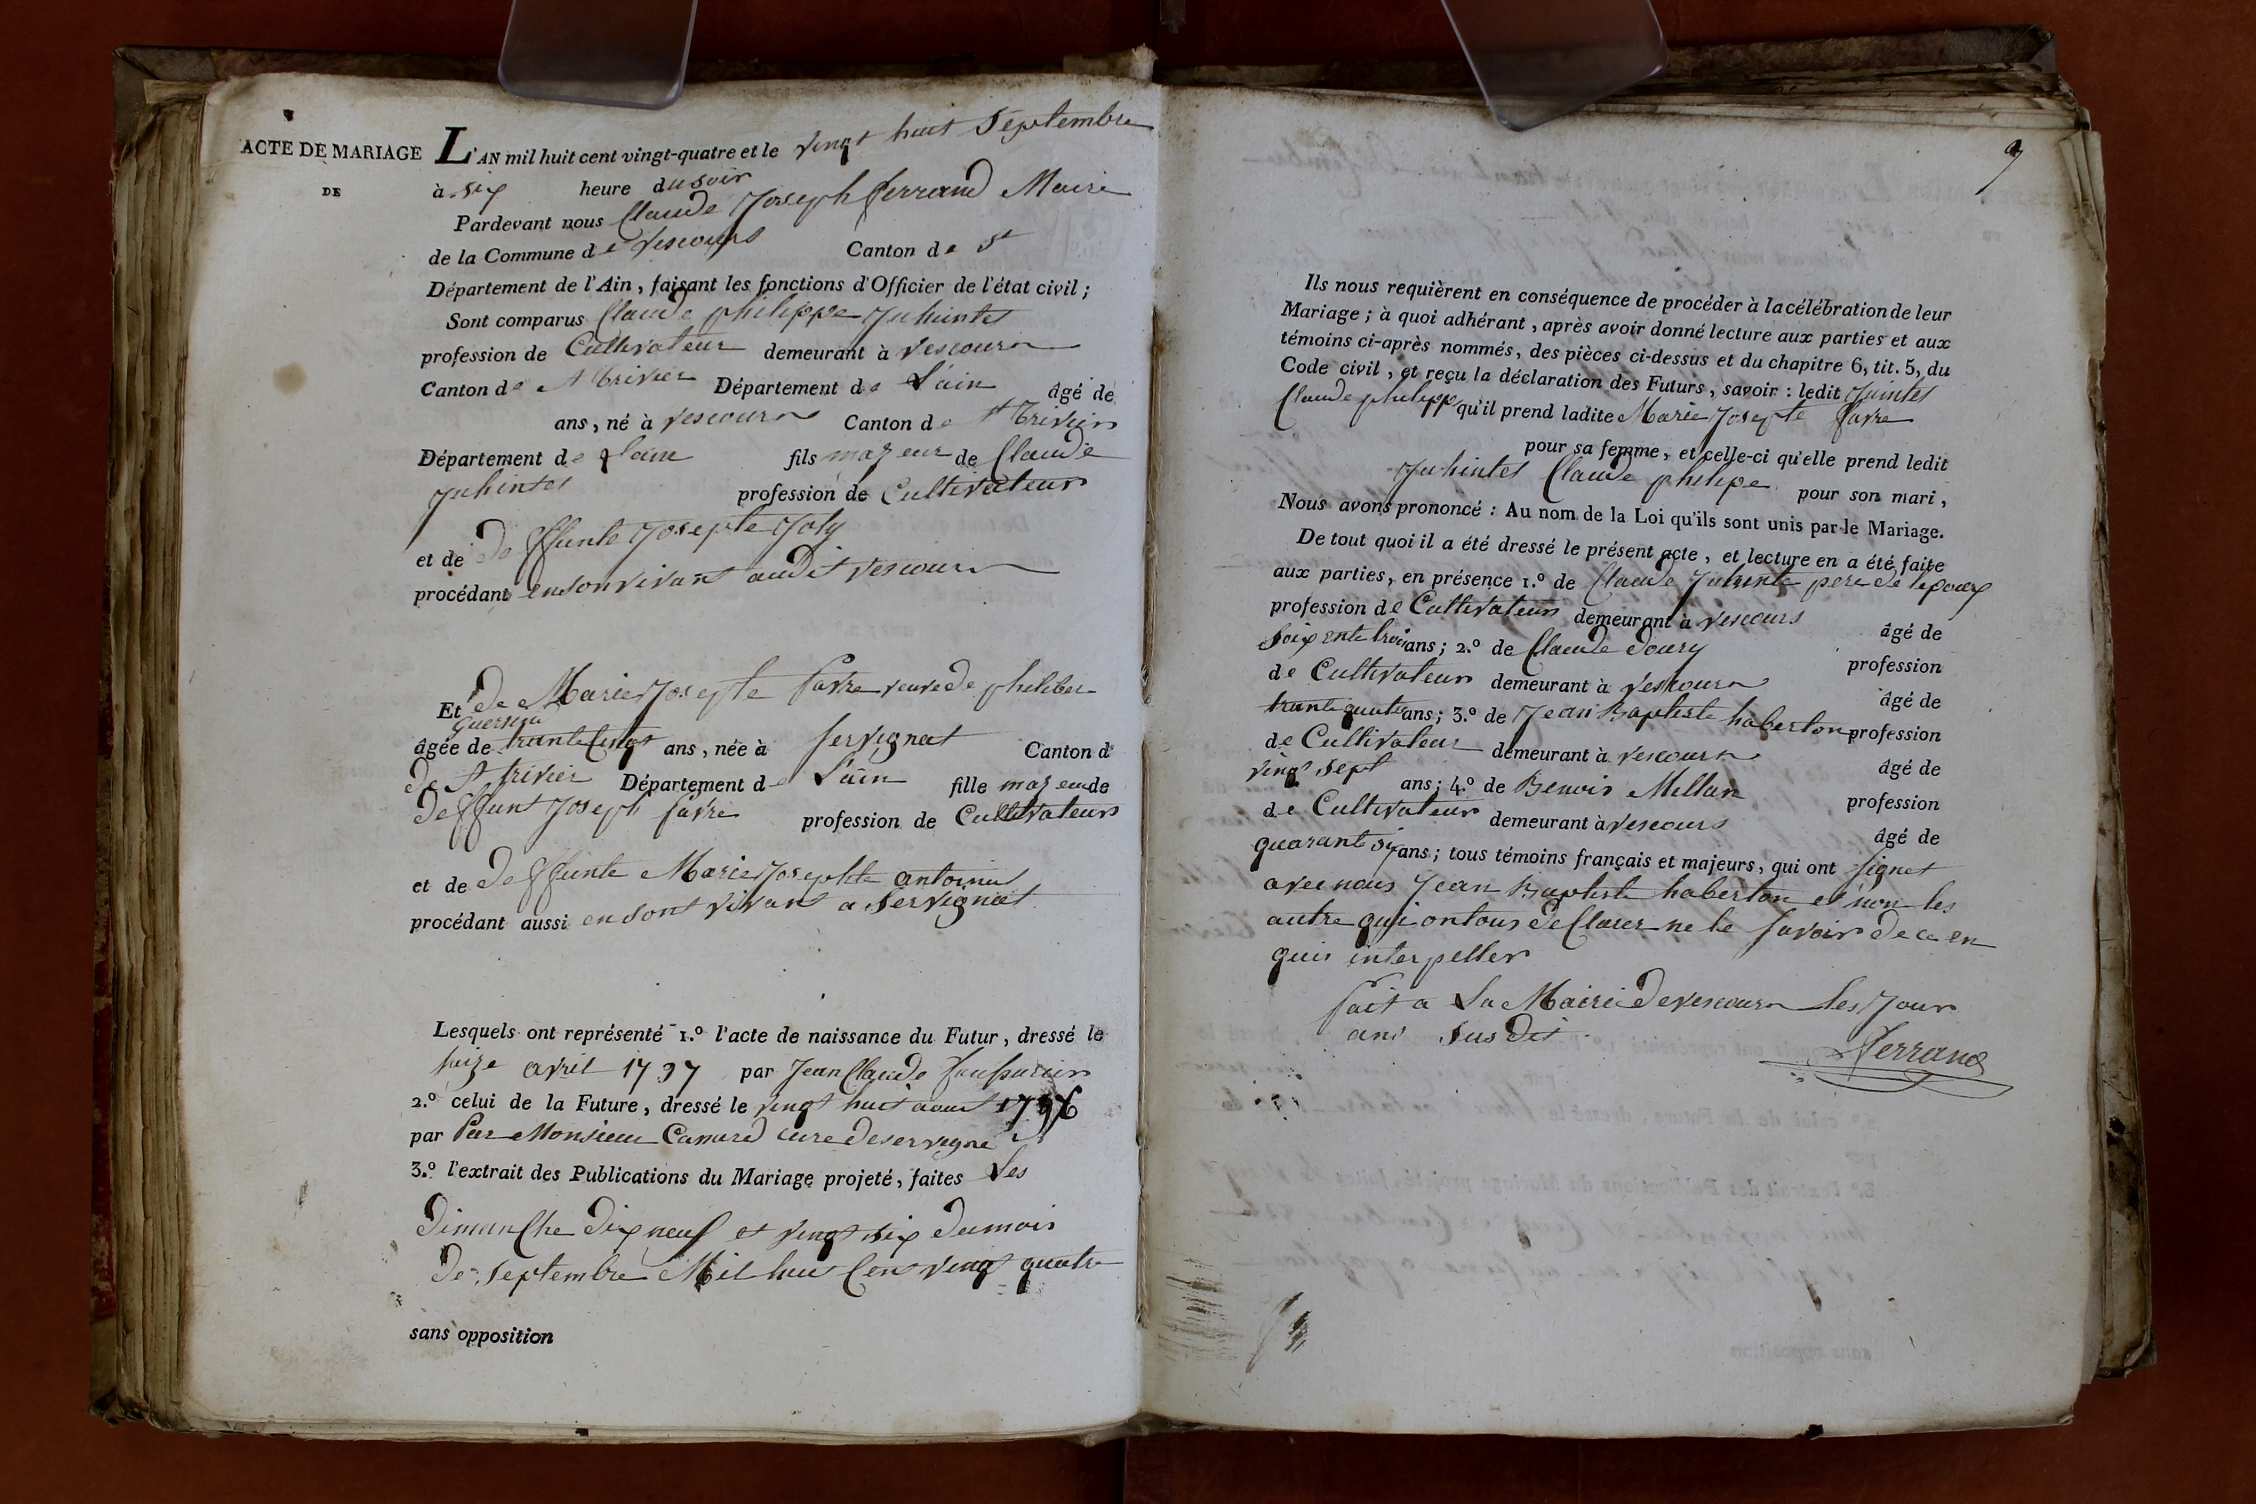 ACTE DE MARIAGE
DE
L'AN mil huit cent vingt-quatre et le vingt huit Septembre
à six heure du soir
Pardevant nous Claude Joseph ferrand Maire
de la Commune de vescours Canton de St
Département de l'Ain, faisant les fonctions d'Officier de l'état civil;
Sont comparus Claude philippe Juhintet
profession de Cultivateur demeurant à vescours
Canton de St trivier Département de L'ain âgé de
ans, né à vescours Canton de St trivier
Département de Lain fils majeur de Claude
Juhintet profession de Cultivateur
et de deffunte Josepte Joly
procédant en son vivant audit vescours
Et de Marie Josepte favre veuve de philiber
âgée de trante ans, née à servignat Canton d
de St trivier Département de L'ain fille majeur de
deffunt Joseph favre profession de Cultivateur
et de deffunte Marie Josephte antoinet
procédant aussi en sont vivant a servignat
Lesquels ont représenté 1.º l'acte de naissance du Futur, dressé le
seize avril 1797 par Jean Claude
2.º celui de la Future, dressé le vingt huit aout
par Par Monsieur Camard cure de servigna
3.º l'extrait des Publications du Mariage projeté, faites Les
dimanche dix neuf et vingt six du mois
de septembre Mil huit Cent vingt quatre
sans opposition
9
Ils nous requièrent en conséquence de procéder à la célébration de leur
Mariage; à quoi adhérant, après avoir donné lecture aux parties et aux
témoins ci-après nommés, des pièces ci-dessus et du chapitre 6, tit. 5, du
Code civil, et reçu la déclaration des Futurs, savoir: ledit Juintet
Claude philippe qu'il prend ladite Marie Josepte favre
pour sa femme, et celle-ci qu'elle prend ledit
Juhintet Claude philipe pour son mari,
Nous avons prononcé: Au nom de la Loi qu'ils sont unis par le Mariage.
De tout quoi il a été dressé le présent acte, et lecture en a été faite
aux parties, en présence 1.º de Claude Juhintet pere de lepoux
profession de Cultivateur demeurant à vescours âgé de
soixente trois ans; 2.º de Claude doury profession
de Cultivateur demeurant à vescours âgé de
trante quatre ans; 3.º de Jean Baptiste haberton profession
de Cultivateur demeurant à vescours âgé de
vingt sept ans; 4.º de Benois Millan profession
de Cultivateur demeurant à vescours âgé de
quarant six ans; tous témoins français et majeurs, qui ont signet
avec nous Jean Baptiste haberton et non les
autre qui on tous de Clarer ne le savoir de ce en
quis interpeller
fait a La Mairie de vescours Les Jour
ans sus dit
Ferrand